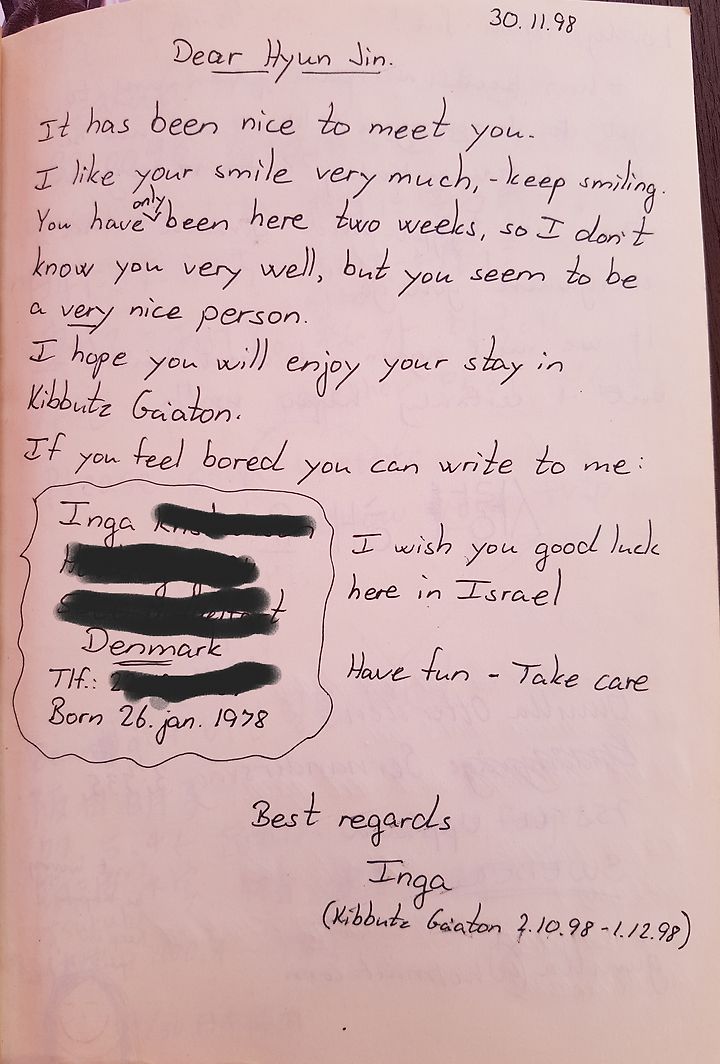 30.11.98
Dear Hyun Jin.
It has been nice to meet you.
I like your smile very much, - keep smiling.
You have only been here two weeks, so I don't
know you very well, but you seem to be
a very nice person.
I hope you will enjoy your stay in
Kibbutz Ga'aton.
If you feel bored you can write to me:
Inga
Denmark
Tlf.:
Born 26. jan. 1978
I wish you good luck
here in Israel
Have fun - Take care
Best regards
Inga
(Kibbutz Ga'aton 2.10.98 - 1.12.98)